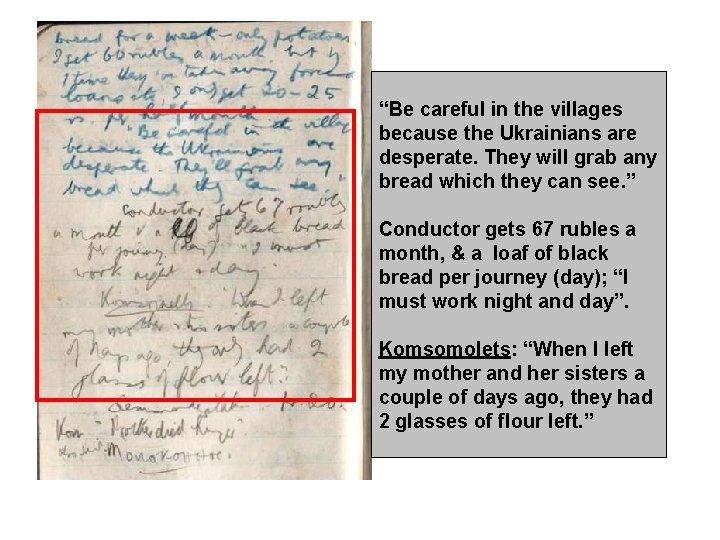 bread for a week – only potatoes.
I get 60 roubles a month, but by
time they're taken away forced
loans etc, I only get 20–25
rs. per half month.
"Be careful in the villages
because the Ukrainians are
desperate. They'll grab any
bread which they can see."
Conductor gets 67 roubles
a month & a lf of black bread
per journey (day) "I must
work night & day."
Komsomolets: "When I left
my mother & two sisters a couple
of days ago, they only had 2
glasses of flour left."
10.20.
Kom "Brother died hunger"
“Be careful in the villages
because the Ukrainians are
desperate. They will grab any
bread which they can see. ”
Conductor gets 67 rubles a
month, & a loaf of black
bread per journey (day); “I
must work night and day”.
Komsomolets: “When I left
my mother and her sisters a
couple of days ago, they had
2 glasses of flour left. ”